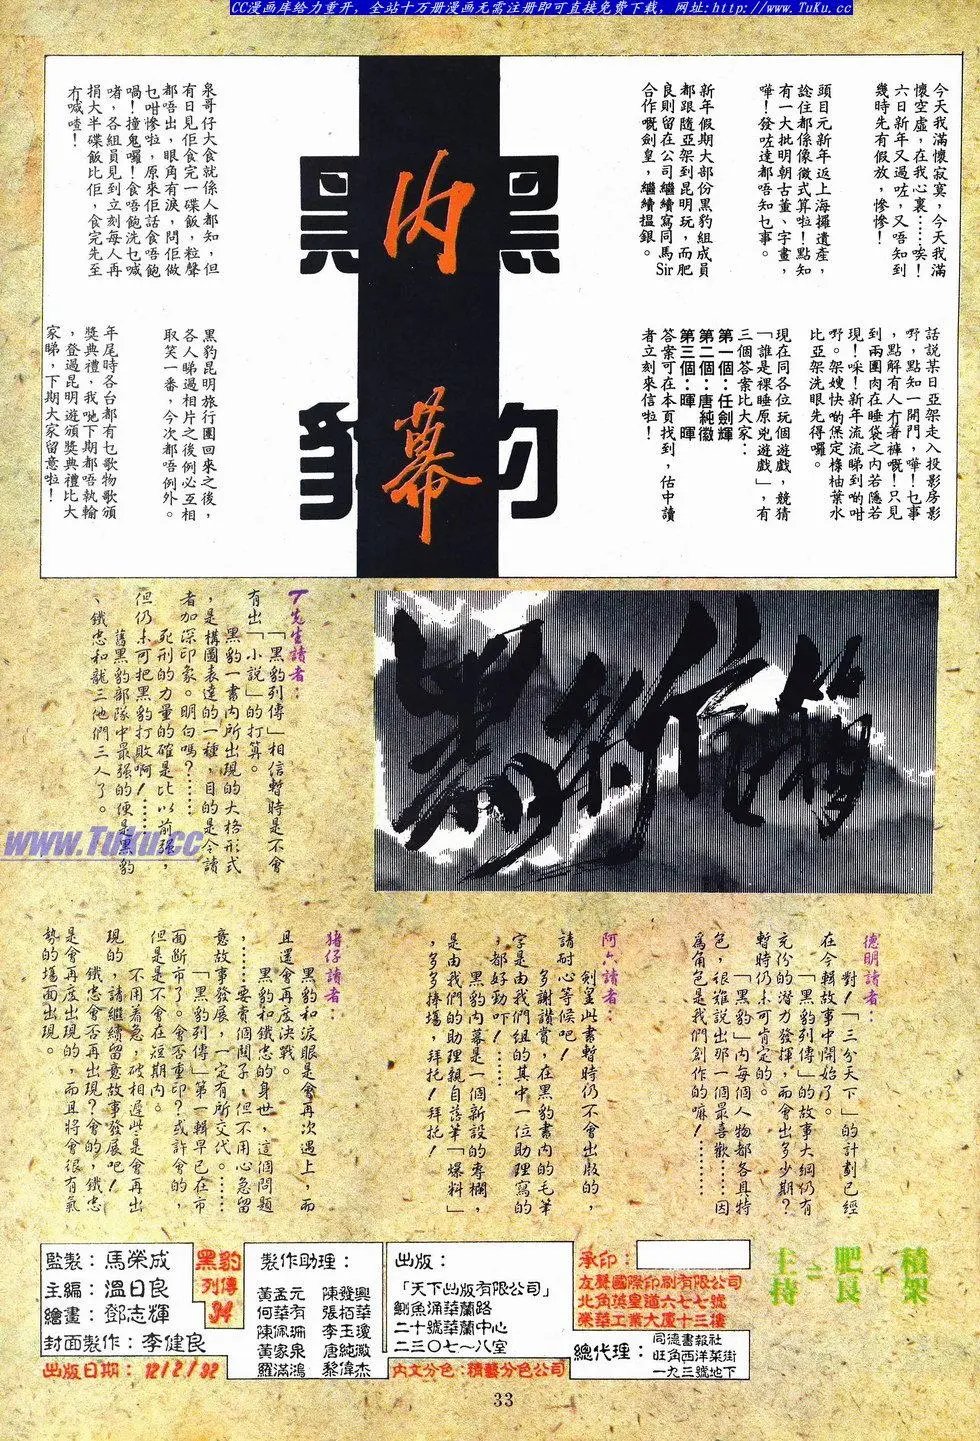 CC漫画库给力重开，全站十万册漫画无需注册即可直接免费下载，网址:http://www.TuKu.cc
今天我滿懷寂寞，今天我滿
懷空虛，在我心裏……唉！
六日新年又過咗，又唔知到
幾時先有假放，慘慘！
頭目元新年返上海攞遺產，
諗住都係像徵式算啦！點知
有一大批明朝古董、字畫，
嘩！發咗達都唔知乜事。
新年假期大部份黑豹組成員
都跟隨亞架到昆明玩，而肥
良則留在公司繼續寫同馬Sir
合作嘅劍皇，繼續揾銀。
話說某日亞架走入投影房影
嘢，點知一開門，嘩！乜事
，點解有人冇著褲嘅！只見
到兩團肉在睡袋之內若隱若
現！啋！新年流流睇到啲咁
嘢。架嫂快啲煲定椂柚葉水
比亞架洗眼先得囉。
現在同各位玩個遊戲，競猜
「誰是裸睡原兇遊戲」，有
三個答案比大家：
第一個：任劍輝
第二個：唐純徽
第三個：暉　暉
答案可在本頁找到，估中讀
者立刻來信啦！
黑豹
內幕
泉哥仔大食就係人都知，但
有日見佢食完一碟飯，粒聲
都唔出，眼角有淚，問佢做
乜咁慘啦，原來佢話食唔飽
喎！撞鬼囉！食唔飽洗乜喊
啫，各組員見到立刻每人再
捐大半碟飯比佢，食完先至
冇喊喳！
黑豹昆明旅行團回來之後，
各人睇過相片之後例必互相
取笑一番，今次都唔例外。
年尾時各台都有乜歌物歌頒
獎典禮，我哋下期都唔執輸
，登過昆明遊頒獎典禮比大
家睇，下期大家留意啦！
黑豹信箱
丁先生讀者：
「黑豹列傳」相信暫時是不會
有出「小說」的打算。
黑豹一書內所出現的大格形式
，是構圖表達的一種，目的是令讀
者加深印象。明白嗎？……
死刑的力量的確是比以前強，
但仍未可把黑豹打敗啊！……
舊黑豹部隊中最強的便是黑豹
、鐵忠和龍三他們三人了。
www.Tuku.cc
德明讀者：
對！「三分天下」的計劃已經
在今輯故事中開始了。
「黑豹列傳」的故事大綱仍有
充份的潛力發揮，而會出多少期？
暫時仍未可肯定的。
「黑豹」內每個人物都各具特
色，很難說出那一個最喜歡……因
爲角色是我們創作的嘛！………
阿六讀者：
劍皇此書暫時仍不會出版的
請耐心等候吧！
多謝讚賞，在黑豹書內的毛筆
字是由我們組的其中一位助理寫的
，都好勁吓！……
黑豹內幕是一個新設的專欄，
是由我們的助理親自落筆「爆料」
，多多捧場，拜托！拜托！
豬仔讀者：
黑豹和淚眼是會再次遇上，而
且還會再度決戰。
黑豹和鐵忠的身世，這個問題
，……要賣個関子，但不用心急留
意故事發展，一定有所交代。……
「黑豹列傳」第一輯早已在市
面斷市了。會否重印？或許會的，
但是不會在短期內。
不用着急，破相遲些是會再出
現的，請繼續留意故事發展吧！
鐵忠會否再出現？會的，鐵忠
是會再度出現的，而且將會很有氣
勢的場面出現。
監製：馬榮成
主編：溫日良
繪畫：鄧志輝
封面製作：李健良
出版日期：12/2/92
黑豹
列傳
34
製作助理：
黃孟元　陳發興
何華有　張栢華
陳佩珊　李玉瓊
黃家泉　唐純澂
羅滿鴻　黎偉杰
出版：
「天下出版有限公司」
鰂魚涌華蘭路
二十號華蘭中心
二三〇七〜八室
內文分色：積藝分色公司
承印：
友聲國際印刷有限公司
北角英皇道六七七號
榮華工業大廈十三樓
總代理：
同德書報社
旺角西洋菜街
一九三號地下
積架
+
肥良
=
主持
33